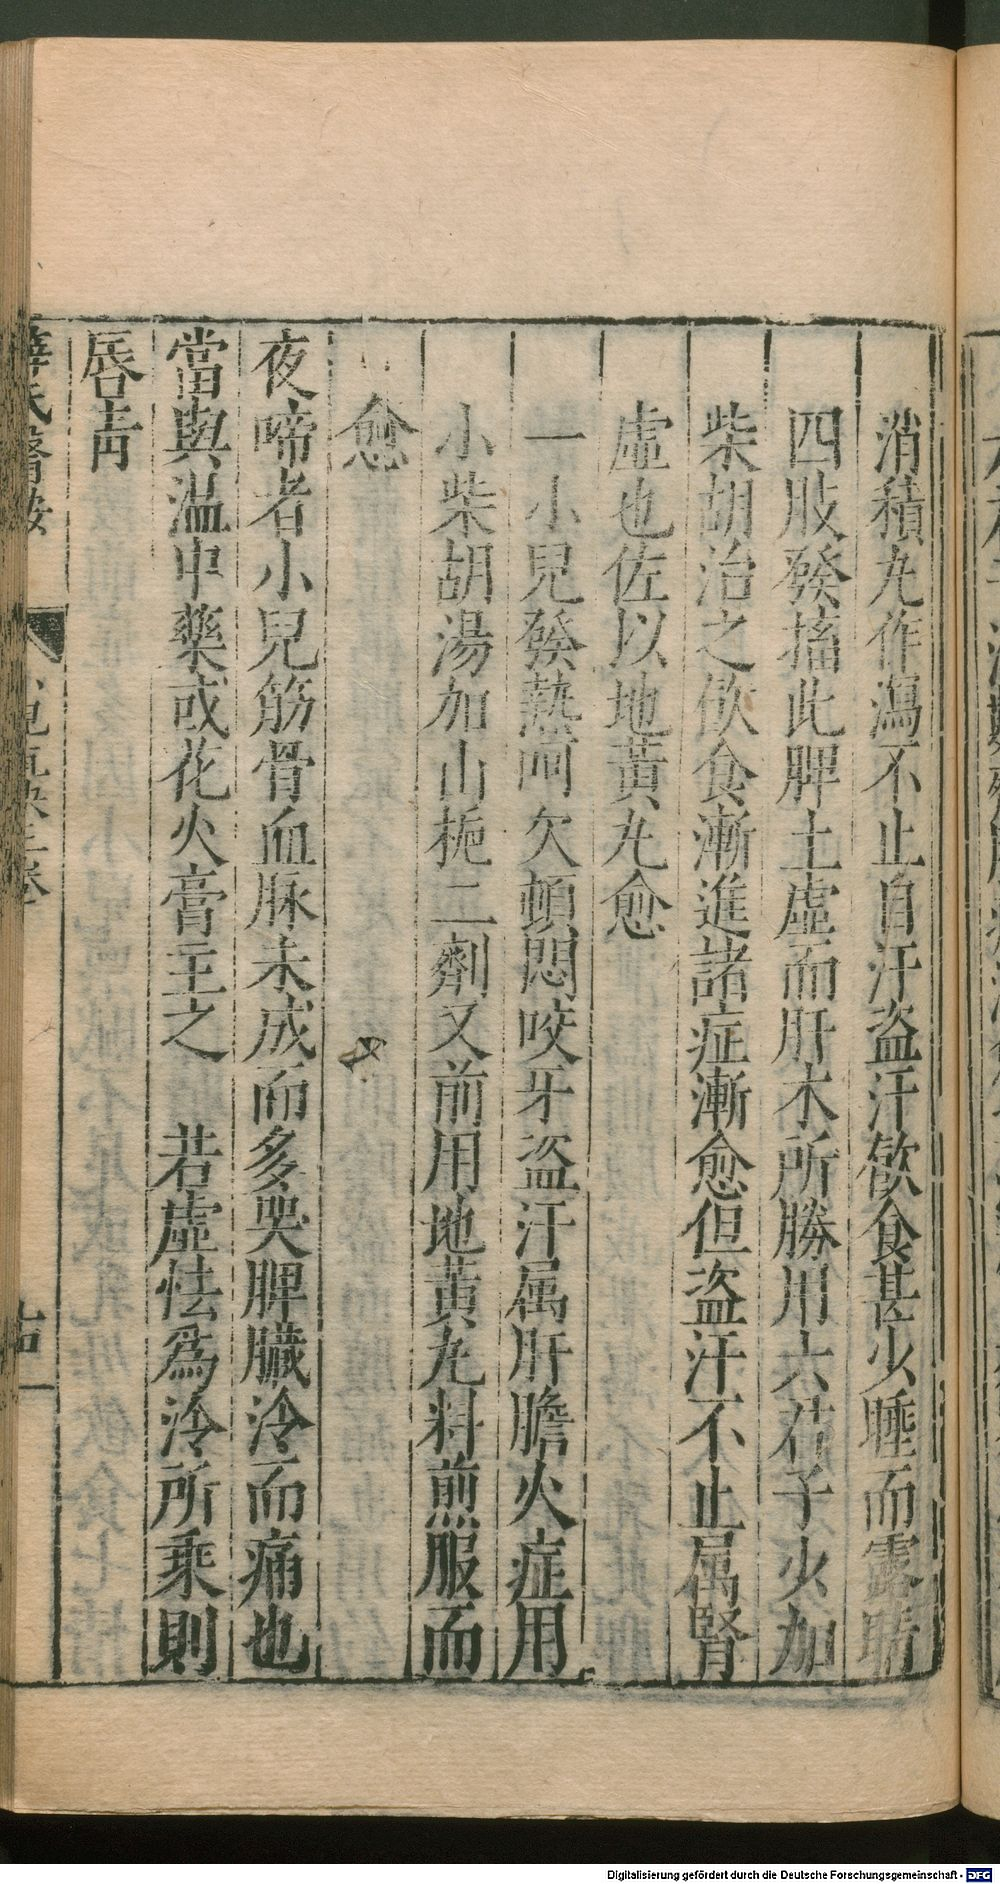 消積丸作瀉不止自汗盜汗飲食甚少睡而露睛
四肢發搐此脾土虛而肝木所勝用六君子少加
柴胡治之飲食漸進諸症漸愈但盜汗不止属腎
虛也佐以地黃丸愈
一小兒發熱呵欠頓悶咬牙盜汗属肝膽火症用
小柴胡湯加山梔二劑又前用地黃丸料煎服而
愈
夜啼者小兒筋骨血脉未成而多哭脾臟冷而痛也
當與温中藥或花火膏主之　若虛怯爲冷所乘則
唇青
薛氏醫按
卷
Digitalisierung gefördert durch die Deutsche Forschungsgemeinschaft - DFG